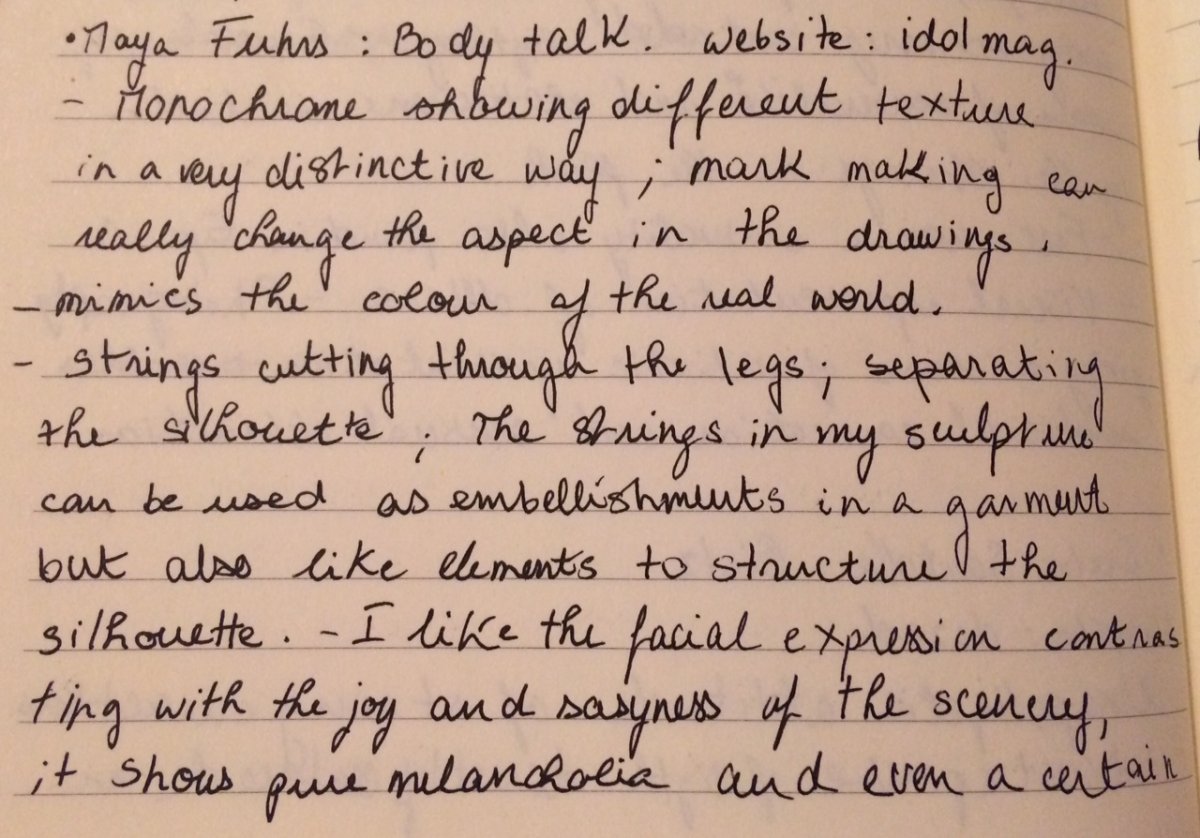 •Maya Fuhrs : Body talk. Website : idol mag.
- Monochrome showing different texture
in a very distinctive way ; mark making can
really change the aspect in the drawings.
- mimics the colour of the real world.
- strings cutting through the legs ; separating
the silhouette ; The strings in my sculpture
can be used as embellishments in a garment
but also like elements to structure the
silhouette. - I like the facial expression contras
ting with the joy and sasyness of the scenery,
it shows pure melancholia and even a certain